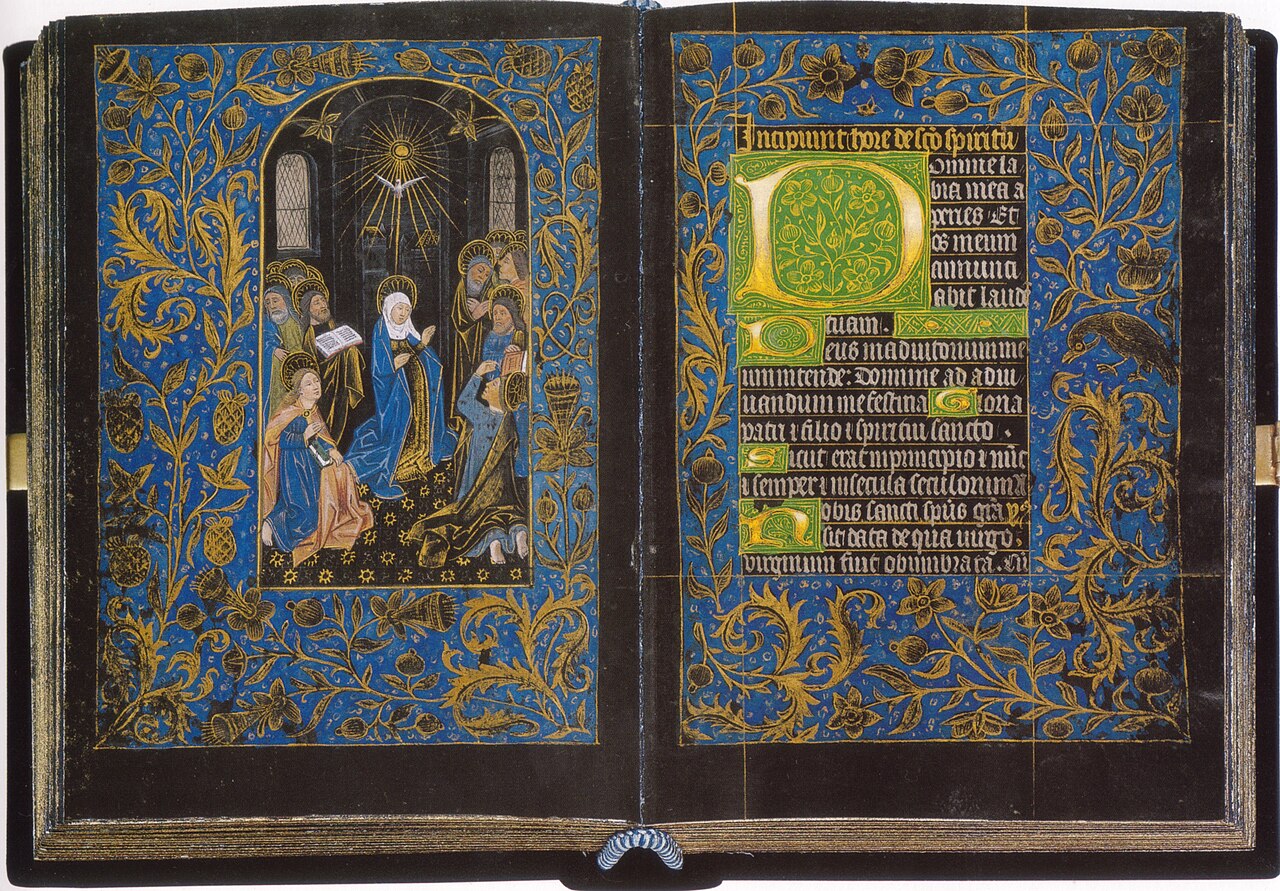 Incipiunt hore de sco spiritu
Domine la
bia mea a
peries. Et
os meum
annunti
abit laude
tuam.
Deus in adiutorium me
um intende: Domine ad adiu
uandum me festina Gloria
patri ⁊ filio ⁊ spiritui sancto.
Sicut erat in principio ⁊ nūc
⁊ semper ⁊ in secula seculorum A
Nobis sancti spūs gra yᵒ
sit data de qua uirgo
virginum fuit obumbrata. Cū